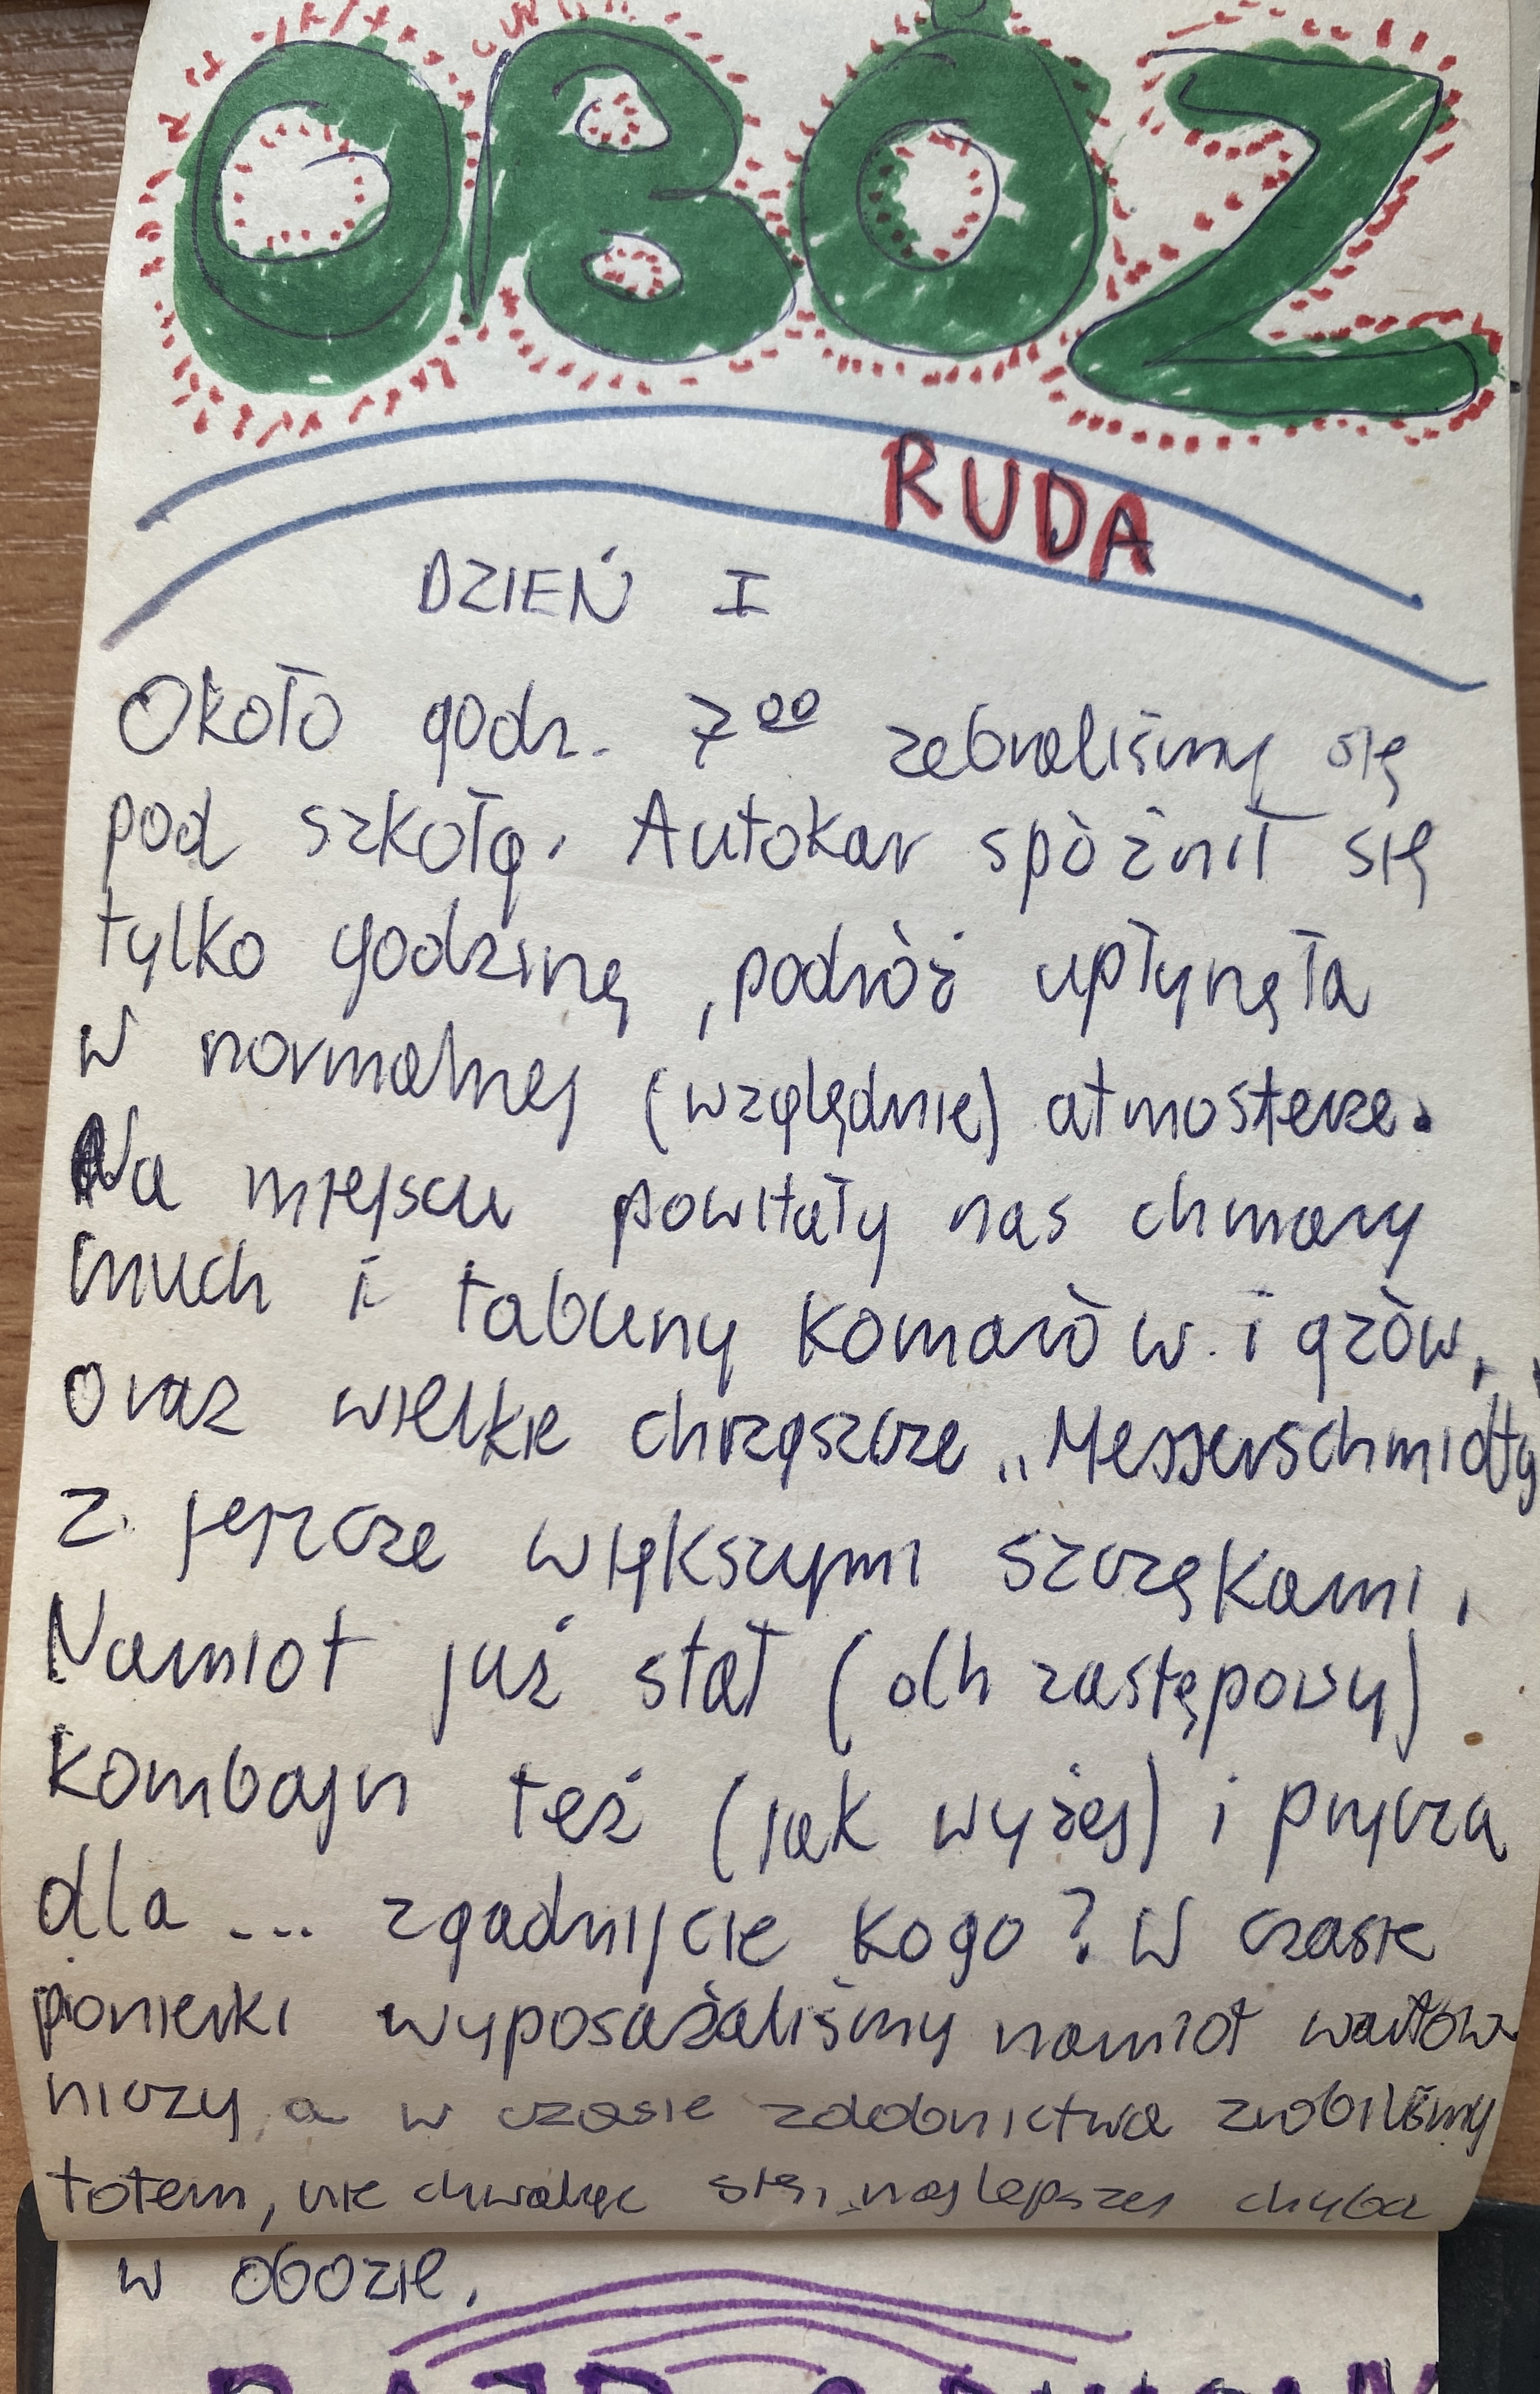 OBÓZ
RUDA
DZIEŃ I
Około godz. 7 00 zebraliśmy się
pod szkołą. Autokar spóźnił się
tylko godzinę, podróż upłynęła
w normalnej (względnie) atmosferze.
Na miejscu powitały nas chmary
much i tabuny komarów i gzów,
oraz wielkie chrząszcze „Messerschmidty
z jeszcze większymi szczękami.
Namiot już stał (dh zastępowy)
kombajn też (jak wyżej) i prycza
dla ... zgadnijcie kogo? W czasie
pionierki wyposażaliśmy namiot wartow-
niczy, a w czasie zdobnictwa zrobiliśmy
totem, nie chwaląc się, najlepszej chyba
w obozie.